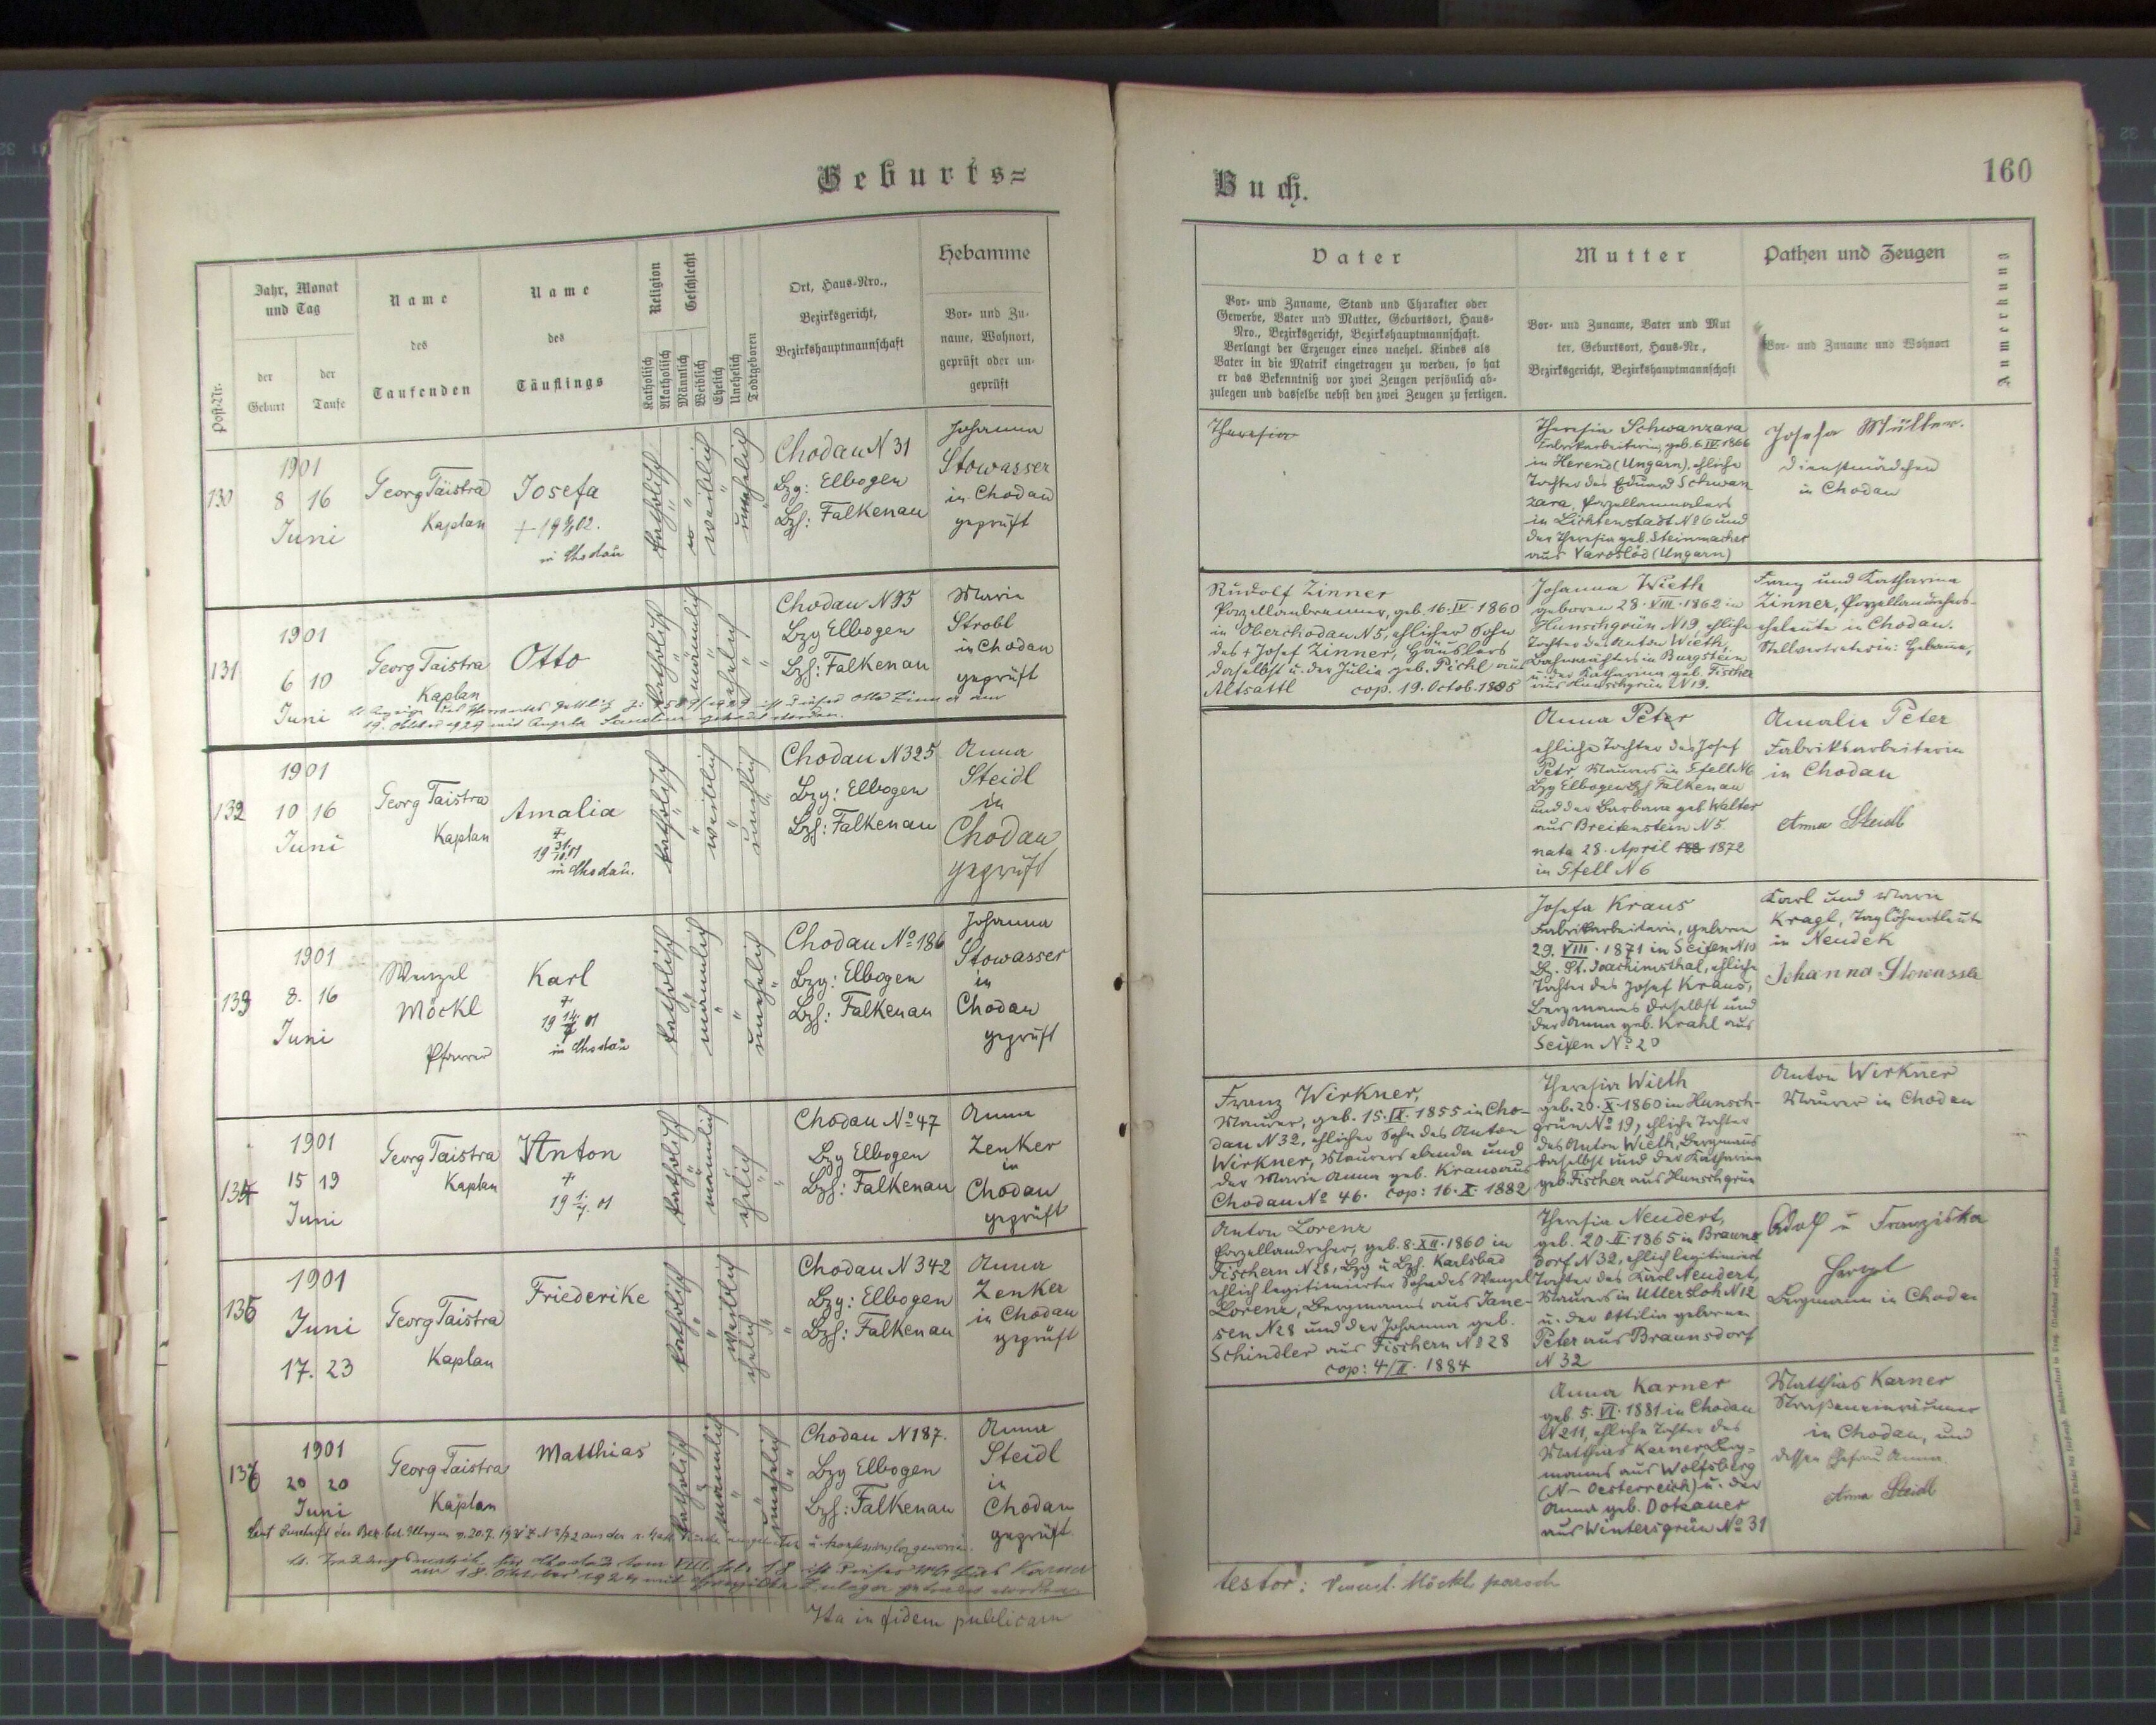 Geburts=
Jahr, Monat
und Tag
der
Geburt
der
Taufe
Post-Nr.
Name
des
Taufenden
Name
des
Täuflings
Religion
Katholisch
Akatholisch
Geschlecht
Männlich
Weiblich
Ehelich
Unehelich
Todtgeboren
Ort, Haus-Nro.,
Bezirksgericht,
Bezirkshauptmannschaft
Hebamme
Vor- und Zu-
name, Wohnort,
geprüft oder un-
geprüft
130
1901
8 16
Juni
Georg Taistra
Kaplan
Josefa
in Chodau
katholisch
weiblich
unehelich
Chodau N 31
Bzg: Elbogen
Bzh: Falkenau
Johanna
Stowasser
in Chodau
geprüft
131
1901
6 10
Juni
Georg Taistra
Kaplan
Otto
katholisch
männlich
ehelich
Chodau N 95
Bzg Elbogen
Bzh: Falkenau
Marie
Strobl
in Chodau
geprüft
132
1901
10 16
Juni
Georg Taistra
Kaplan
Amalia
in Chodau.
katholisch
weiblich
unehelich
Chodau N 325
Bzg: Elbogen
Bzh: Falkenau
Anna
Steidl
in
Chodau
geprüft
133
1901
8. 16
Juni
Wenzel
Möckl
Pfarrer
Karl
in Chodau
katholisch
männlich
unehelich
Chodau No 186
Bzg: Elbogen
Bzh: Falkenau
Johanna
Stowasser
in
Chodau
geprüft
134
1901
15 19
Juni
Georg Taistra
Kaplan
Anton
katholisch
männlich
ehelich
Chodau No 47
Bzg Elbogen
Bzh: Falkenau
Anna
Zenker
in
Chodau
geprüft
135
1901
Juni
17. 23
Georg Taistra
Kaplan
Friederike
katholisch
weiblich
ehelich
Chodau N 342
Bzg: Elbogen
Bzh: Falkenau
Anna
Zenker
in Chodau
geprüft
136
1901
20 20
Juni
Georg Taistra
Kaplan
Matthias
katholisch
männlich
unehelich
Chodau N 187.
Bzg Elbogen
Bzh: Falkenau
Anna
Steidl
in
Chodau
geprüft
Ita in fidem publicam
Buch.
160
Vater
Vor- und Zuname, Stand und Charakter oder
Gewerbe, Vater und Mutter, Geburtsort, Haus-
Nro., Bezirksgericht, Bezirkshauptmannschaft.
Verlangt der Erzeuger eines unehel. Kindes als
Vater in die Matrik eingetragen zu werden, so hat
er das Bekenntniß vor zwei Zeugen persönlich ab-
zulegen und dasselbe nebst den zwei Zeugen zu fertigen.
Mutter
Vor- und Zuname, Vater und Mut
ter, Geburtsort, Haus-Nr.,
Bezirksgericht, Bezirkshauptmannschaft
Pathen und Zeugen
Vor- und Zuname und Wohnort
Anmerkung
Theresia
Theresia Schwanzara
Fabrikarbeiterin, geb. 6. IV. 1866
in Herend (Ungarn), ehliche
Tochter des Eduard Schwan
zara, Porzellanmalers
in Lichtenstadt N 86 und
der Theresia geb. Steinmacher
aus Varoslöd (Ungarn)
Josefa Müller.
Dienstmädchen
in Chodau
Rudolf Zinner
Porzellanbrenner, geb. 16. IV. 1860
in Oberchodau N 5, ehlicher Sohn
des + Josef Zinner, Häuslers
daselbst u. der Julia geb. Pichl aus
Altsattl cop. 19. Octob. 1885
Johanna Wieth
geboren 28. VIII. 1862 in
Hunschgrün N 19 ehliche
Tochter des Anton Wieth,
Bahnwächters in Burgstein
u. der Katharina geb. Fischer
aus Hunschgrün N 19.
Franz und Katharina
Zinner, Porzellandrehers-
eheleute in Chodau.
Stellvertreterin: Hebamme,
Anna Peter
ehliche Tochter des Josef
Petr, Maurers in Gfell N 6
Bzg Elbogen Bzh Falkenau
und der Barbara geb. Walter
aus Breitenstein N 5.
nata 28. April 1872
in Gfell N 6
Amalie Peter
Fabriksarbeiterin
in Chodau
Anna Steidl
Josefa Kraus
Fabrikarbeiterin, geboren
29. VIII. 1871 in Seifen N 10
Bz. St. Joachimsthal, ehliche
Tochter des Josef Kraus,
Bergmanns daselbst und
der Anna geb. Krahl aus
Seifen No 20
Karl und Marie
Kragl, Taglöhnersleute
in Neudek
Johanna Stowasser
Franz Wirkner,
Maurer, geb. 15. IX. 1855 in Cho-
dau N 32, ehlicher Sohn des Anton
Wirkner, Maurers ebenda und
der Maria Anna geb. Kraus aus
Chodau No 46. cop: 16. X. 1882
Theresia Wieth
geb. 20. X. 1860 in Hunsch-
grün No 19, ehliche Tochter
des Anton Wieth, Bergmanns
daselbst und der Katharina
geb. Fischer aus Hunschgrün
Anton Wirkner
Maurer in Chodau
Anton Lorenz
Porzellandreher, geb. 8. XII. 1860 in
Fischern N 28, Bzg u Bzh. Karlsbad
ehlich legitimierter Sohn des Wenzel
Lorenz, Bergmanns aus Jane-
sen N 28 und der Johanna geb.
Schindler aus Fischern No 28
cop: 4/II. 1884
Theresia Neudert,
geb. 20. II. 1865 in Brauns
dorf N 32, ehlich legitimiert
Tochter des Karl Neudert,
Maurers in Littersloh N 12
u. der Ottilia geborenen
Peter aus Braunsdorf
N 32
Adolf u Franziska
Bergmann in Chodau
Anna Karner
geb. 5. VI. 1881 in Chodau
N 211, ehliche Tochter des
Matthias Karner Berg-
manns aus Wolfsberg
(N- Oesterreich) u. der
Anna geb. Dotzauer
aus Wintersgrün No 31
Matthias Karner
Straßeneinräumer
in Chodau, und
dessen Ehefrau Anna.
Anna Steidl
testor: Vencesl. Möckl, paroch